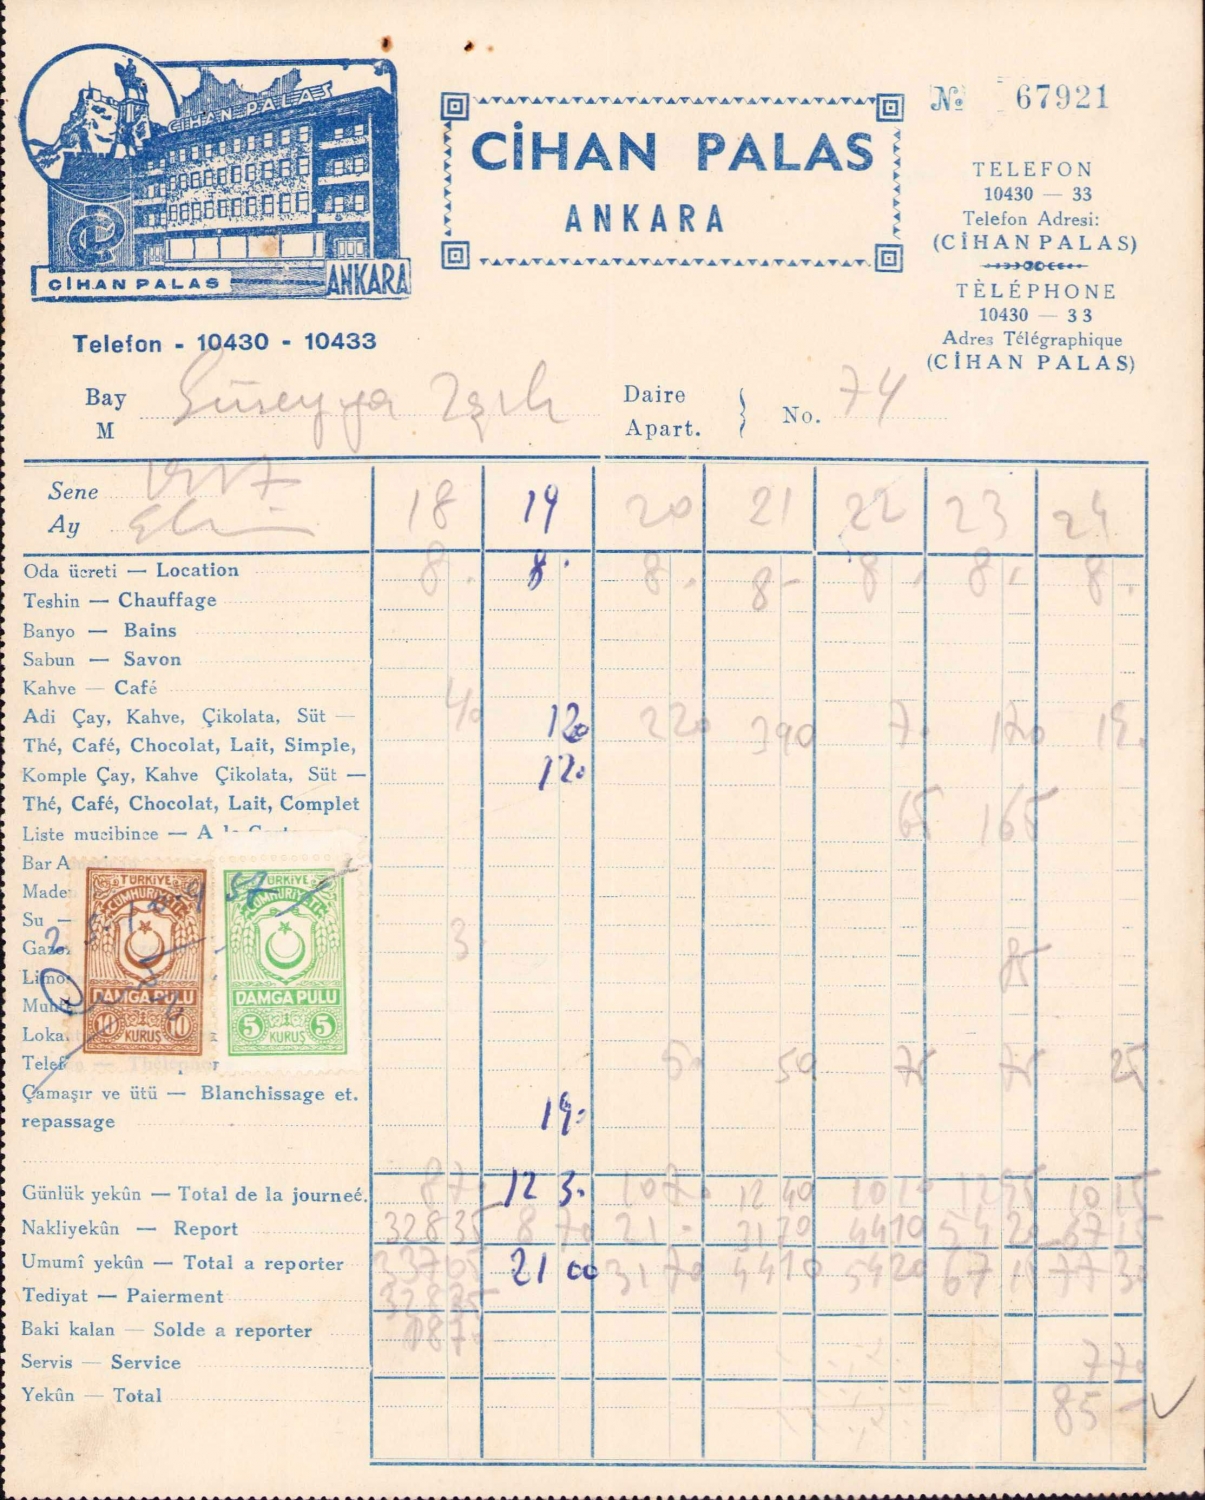 CİHAN PALAS
CİHAN PALAS ANKARA
Telefon - 10430 - 10433
CİHAN PALAS
ANKARA
No. 67921
TELEFON
10430 — 33
Telefon Adresi:
(CİHAN PALAS)
TÈLÉPHONE
10430 — 33
Adres Télégraphique
(CİHAN PALAS)
Bay Süreyya
M
Daire
Apart. } No. 74
Sene
Ay 18 19 20 21 22 23 24
Oda ücreti — Location 8. 8. 8. 8- 8. 8. 8.
Teshin — Chauffage
Banyo — Bains
Sabun — Savon
Kahve — Café
Adi Çay, Kahve, Çikolata, Süt — 40 120 220 390 70 170
Thé, Café, Chocolat, Lait, Simple,
Komple Çay, Kahve Çikolata, Süt — 120
Thé, Café, Chocolat, Lait, Complet 65 165
Liste mucibince — A
Bar A
Made
Su —
Gazo 3 85
Limo
Muht
Loka
Telef 50 50 75 75 25
TÜRKİYE CUMHURİYATI
DAMGA PULU
10 KURUŞ 10
TÜRKİYE CUMHURİYATI
DAMGA PULU
5 KURUŞ 5
Çamaşır ve ütü — Blanchissage et.
repassage 190
Günlük yekûn — Total de la journeé. 870 12 30 1070 12 40 1010 1295 10 15
Nakliyekûn — Report 32835 8 70 21 - 3170 4410 5420 6715
Umumî yekûn — Total a reporter 33705 21 00 3170 4410 5420 6715 7730
Tediyat — Paierment 32835
Baki kalan — Solde a reporter 0870
Servis — Service 770
Yekûn — Total 85 —